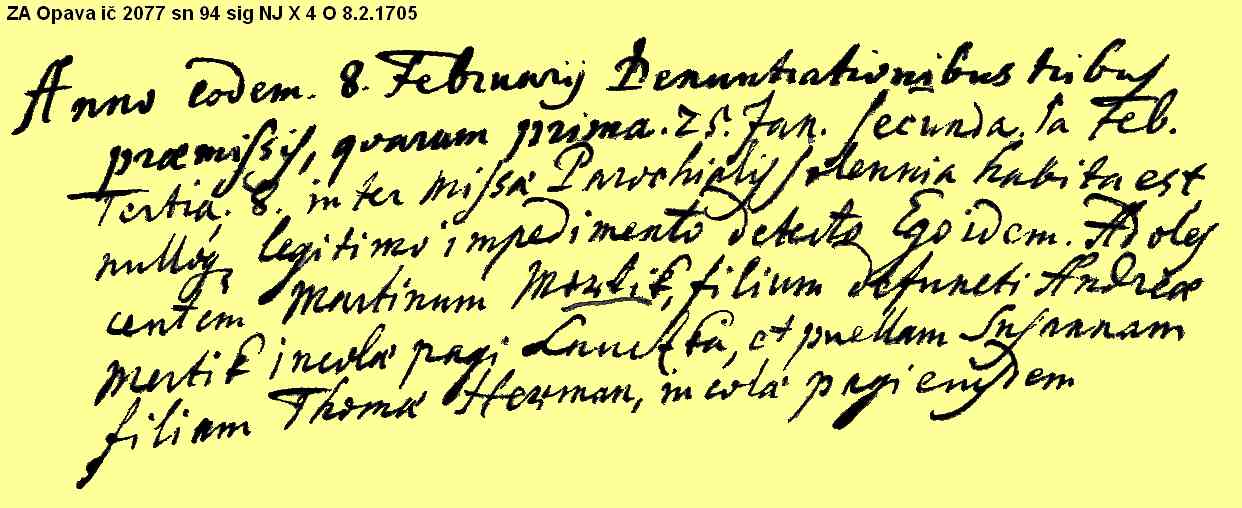 ZA Opava ič 2077 sn 94 sig NJ X 4 O 8.2.1705
Anno eodem. 8. Februarij Denuntiationibus tribus
præmissis, quarum prima. 25. Jan. secunda. 1a Feb.
Tertia. 8. inter Missæ Parochialis solennia habita est
nulloq, legitimo impedimento detecto Ego idem. Adoles
centem Martinum filium defuncti Andreæ
Mertik incolæ pagi et puellam Susannam
filiam Thomæ Herman, incolæ pagi eiusdem